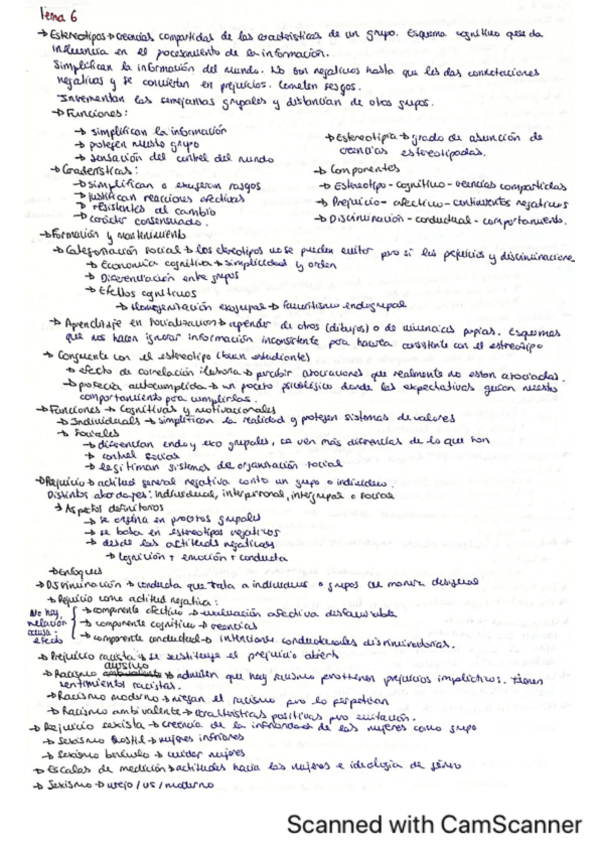 Tema 6
→ Estereotipos → creencias compartidas de las características de un grupo. Esquema cognitivo que da
influencia en el procesamiento de la información.
Simplifican la información del mundo. No son negativos hasta que les das connotaciones
negativas y se convierten en prejuicios. Cometen sesgos.
Incrementan las semejanzas grupales y distancian de otros grupos.
→ Funciones:
→ simplifican la información
→ protegen nuestro grupo
→ sensación del control del mundo
→ Características:
→ simplifican o exageran rasgos
→ justifican reacciones afectivas
→ resistentes al cambio
→ carácter consensuado.
→ Estereotipia → grado de asunción de
creencias estereotipadas.
→ Componentes
→ Estereotipo - cognitivo - creencias compartidas
→ Prejuicio - afectivo - sentimientos negativos
→ Discriminación - conductual - comportamiento.
→ Formación y mantenimiento
→ Categorización social → los estereotipos no se pueden evitar pero si los prejuicios y discriminaciones
→ Economía cognitiva → simplicidad y orden
→ Diferenciación entre grupos
→ Efectos cognitivos
→ Homogenización exogrupal → favoritismo endogrupal
→ Aprendizaje en socialización → aprender de otros (dibujos) o de vivencias propias. Esquemas
que nos hacen ignorar información inconsistente para hacerla consistente con el estereotipo
→ Congruente con el estereotipo (buen estudiante)
→ efecto de correlación ilusoria → percibir asociaciones que realmente no estan asociadas.
→ profecía autocumplida → un proceso psicológico donde las expectativas guían nuestro
comportamiento para cumplirlas.
→ Funciones → Cognitivas y motivacionales
→ Individuales → simplifican la realidad y protegen sistemas de valores
→ Sociales
→ diferencian endo y exo grupales, se ven más diferencias de lo que son
→ control social
→ legitiman sistemas de organización social
→ Prejuicio → actitud general negativa contra un grupo o individuo.
Distintos abordajes: individual, interpersonal, intergrupal o social
→ Aspectos definitorios
→ se origina en procesos grupales
→ se basa en estereotipos negativos
→ desde las actitudes negativas
→ Cognición + emoción + conducta
→ Enfoques
→ Discriminación → conducta que trata a individuos o grupos de manera desigual
→ Prejuicio como actitud negativa:
No hay relación causa-efecto
→ componente afectivo → evaluación afectiva desfavorable
→ componente cognitivo → creencias
→ componente conductual → intenciones conductuales discriminadoras.
→ Prejuicio racista → se sustituye el prejuicio abierto
→ Racismo aversivo → admiten que hay racismo pero tienen prejuicios implícitos. Tienen
sentimientos racistas.
→ Racismo moderno → niegan el racismo pero lo perpetúan
→ Racismo ambivalente → características positivas pero evitación.
→ Prejuicio sexista → creencia de la inferioridad de las mujeres como grupo
→ Sexismo hostil → mujeres inferiores
→ Sexismo benévolo → cuidar mujeres
→ Escalas de medición → actitudes hacia las mujeres e ideología de género
→ Sexismo → viejo / vs / moderno
Scanned with CamScanner